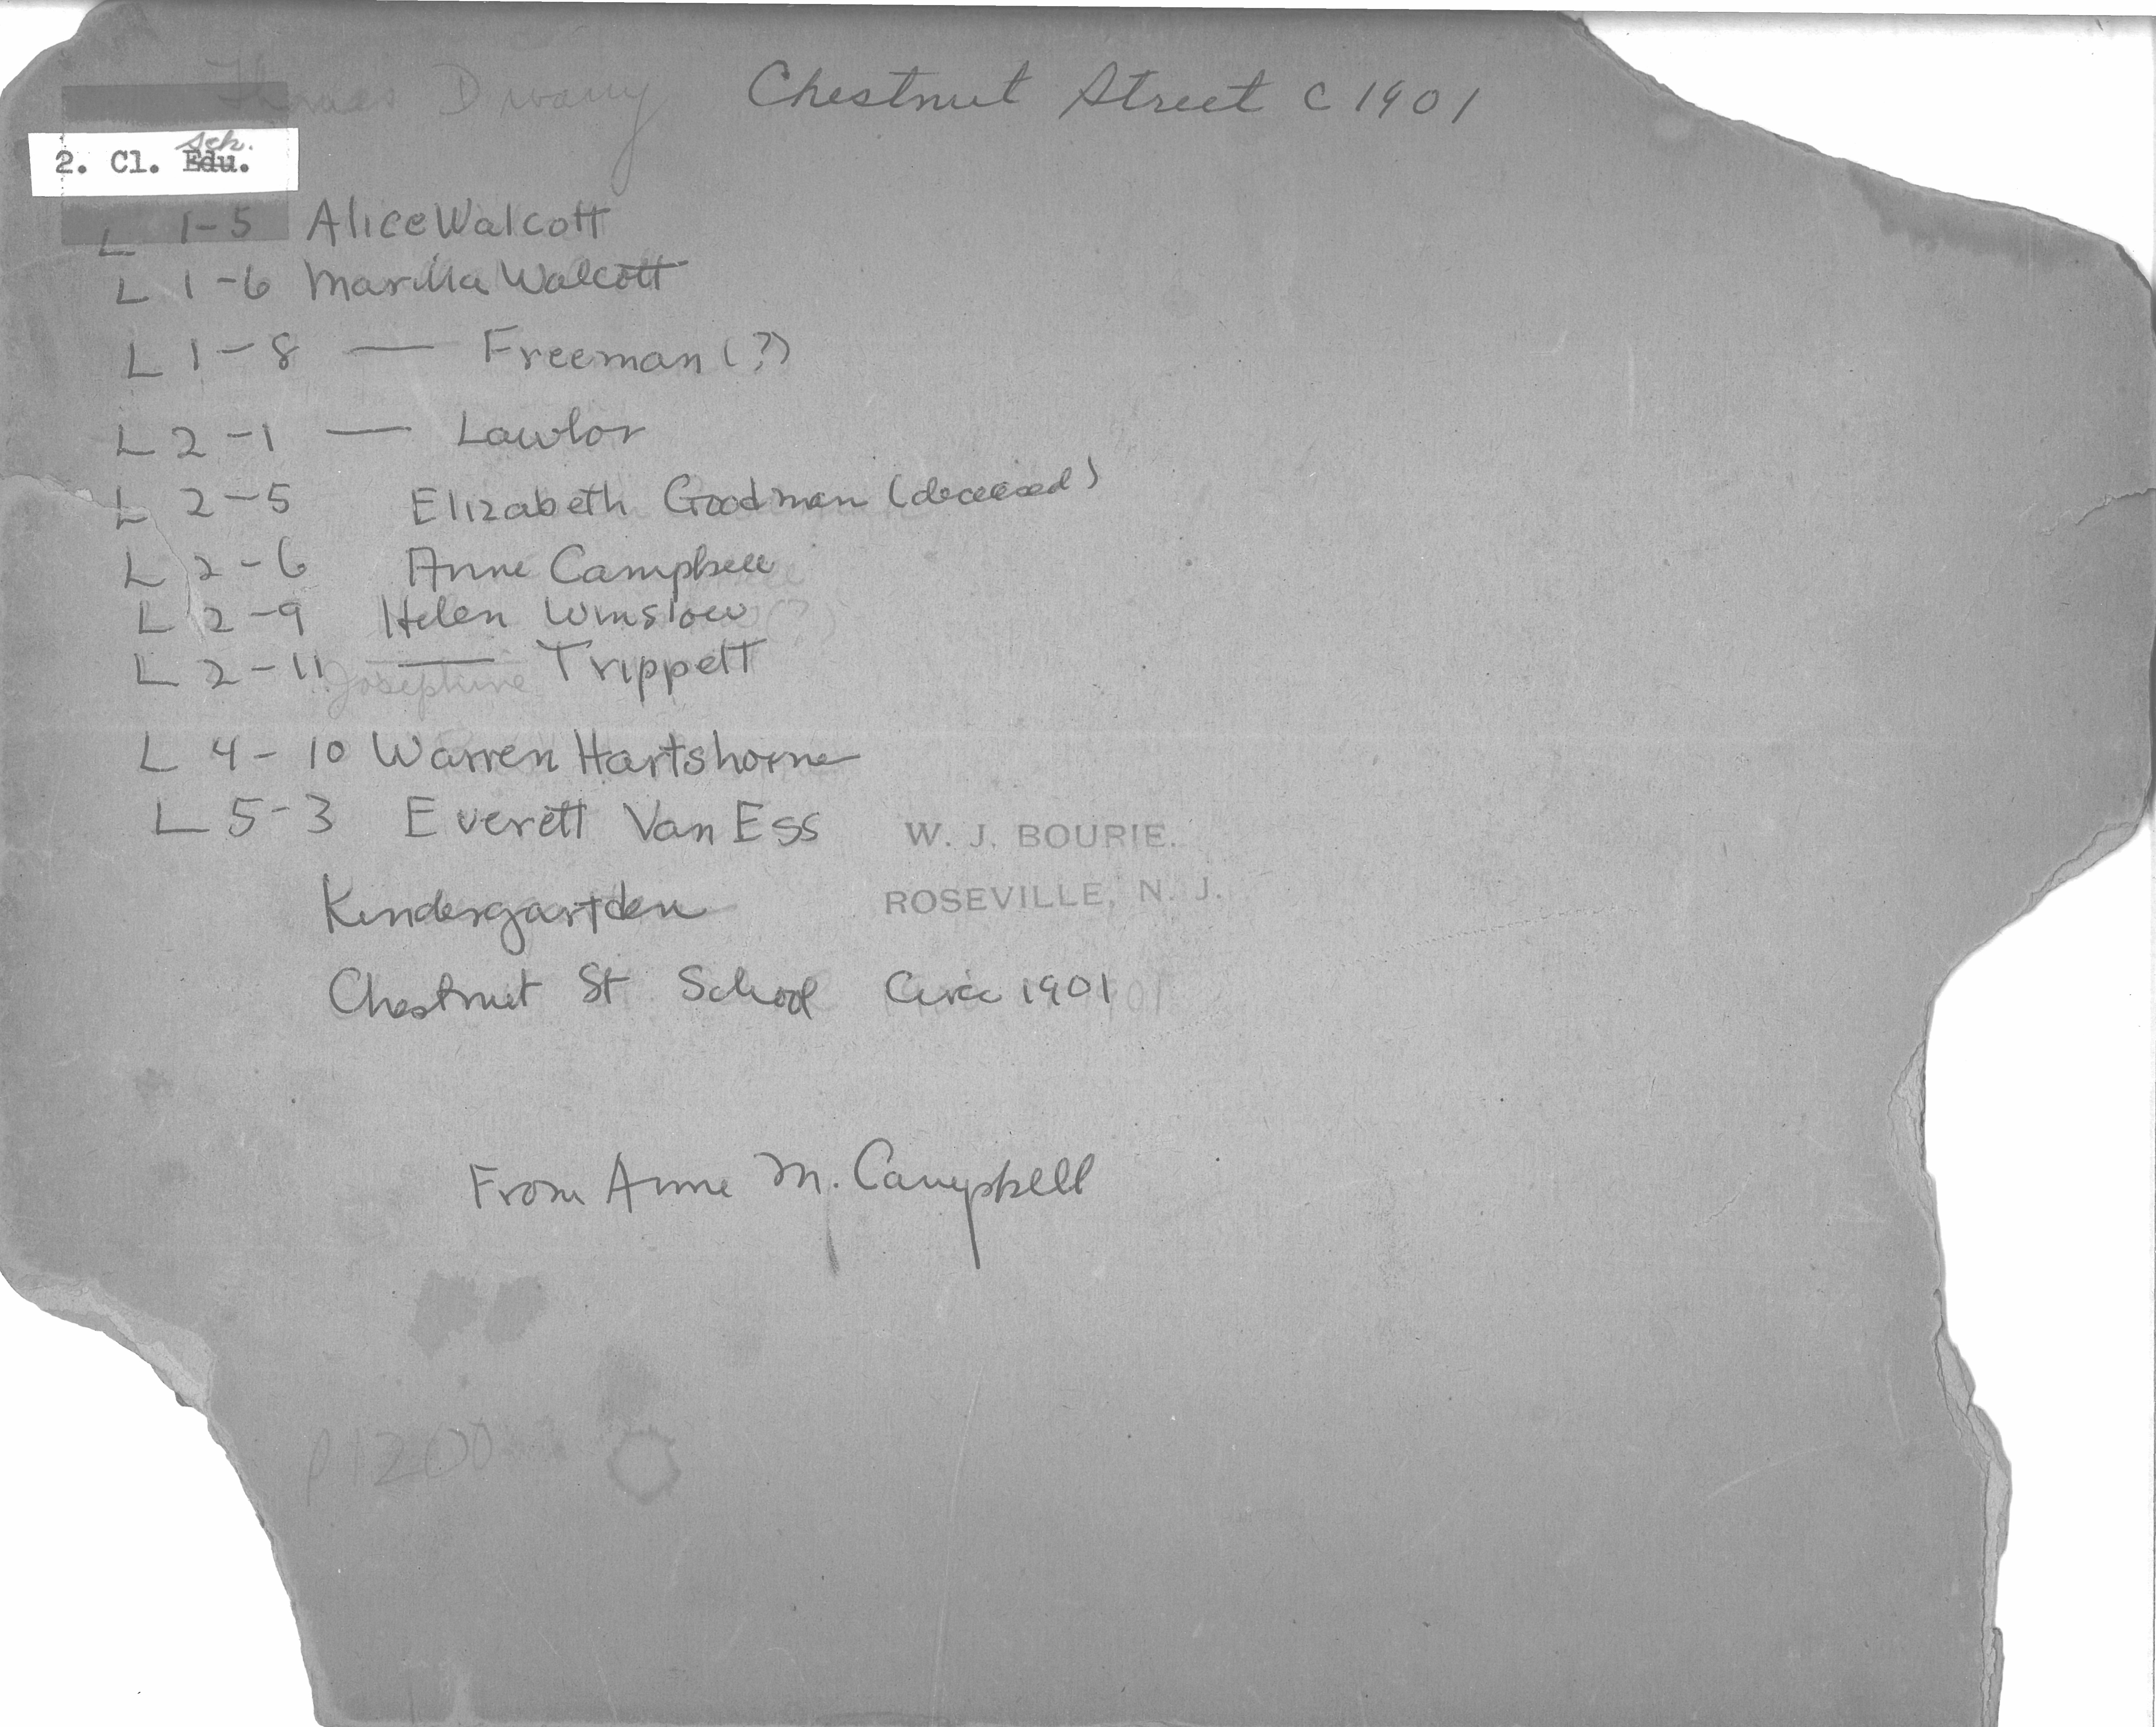 Chestnut Street C 1901
sch.
2. Cl. Edu.
L 1-5 Alice Walcott
L 1-6 Marilla Walcott
L 1-8 — Freeman (?)
L 2-1 — Lawlor
L 2-5 Elizabeth Goodman (deceased)
L 2-6 Anne Campbell
L 2-9 Helen Winslow (?)
L 2-11 — Trippett
Josephine
L 4-10 Warren Hartshorne
L 5-3 Everett Van Ess
W. J. BOURIE.
ROSEVILLE, N. J.
Kindergartden
Chestnut St School Circa 1901
From Anne M. Campbell
P1200